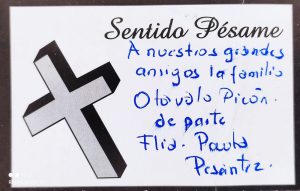 Sentido Pésame
A nuestros grandes
amigos la familia
Otavalo Picón.
de parte
Flia. Pauta
Pesantez.